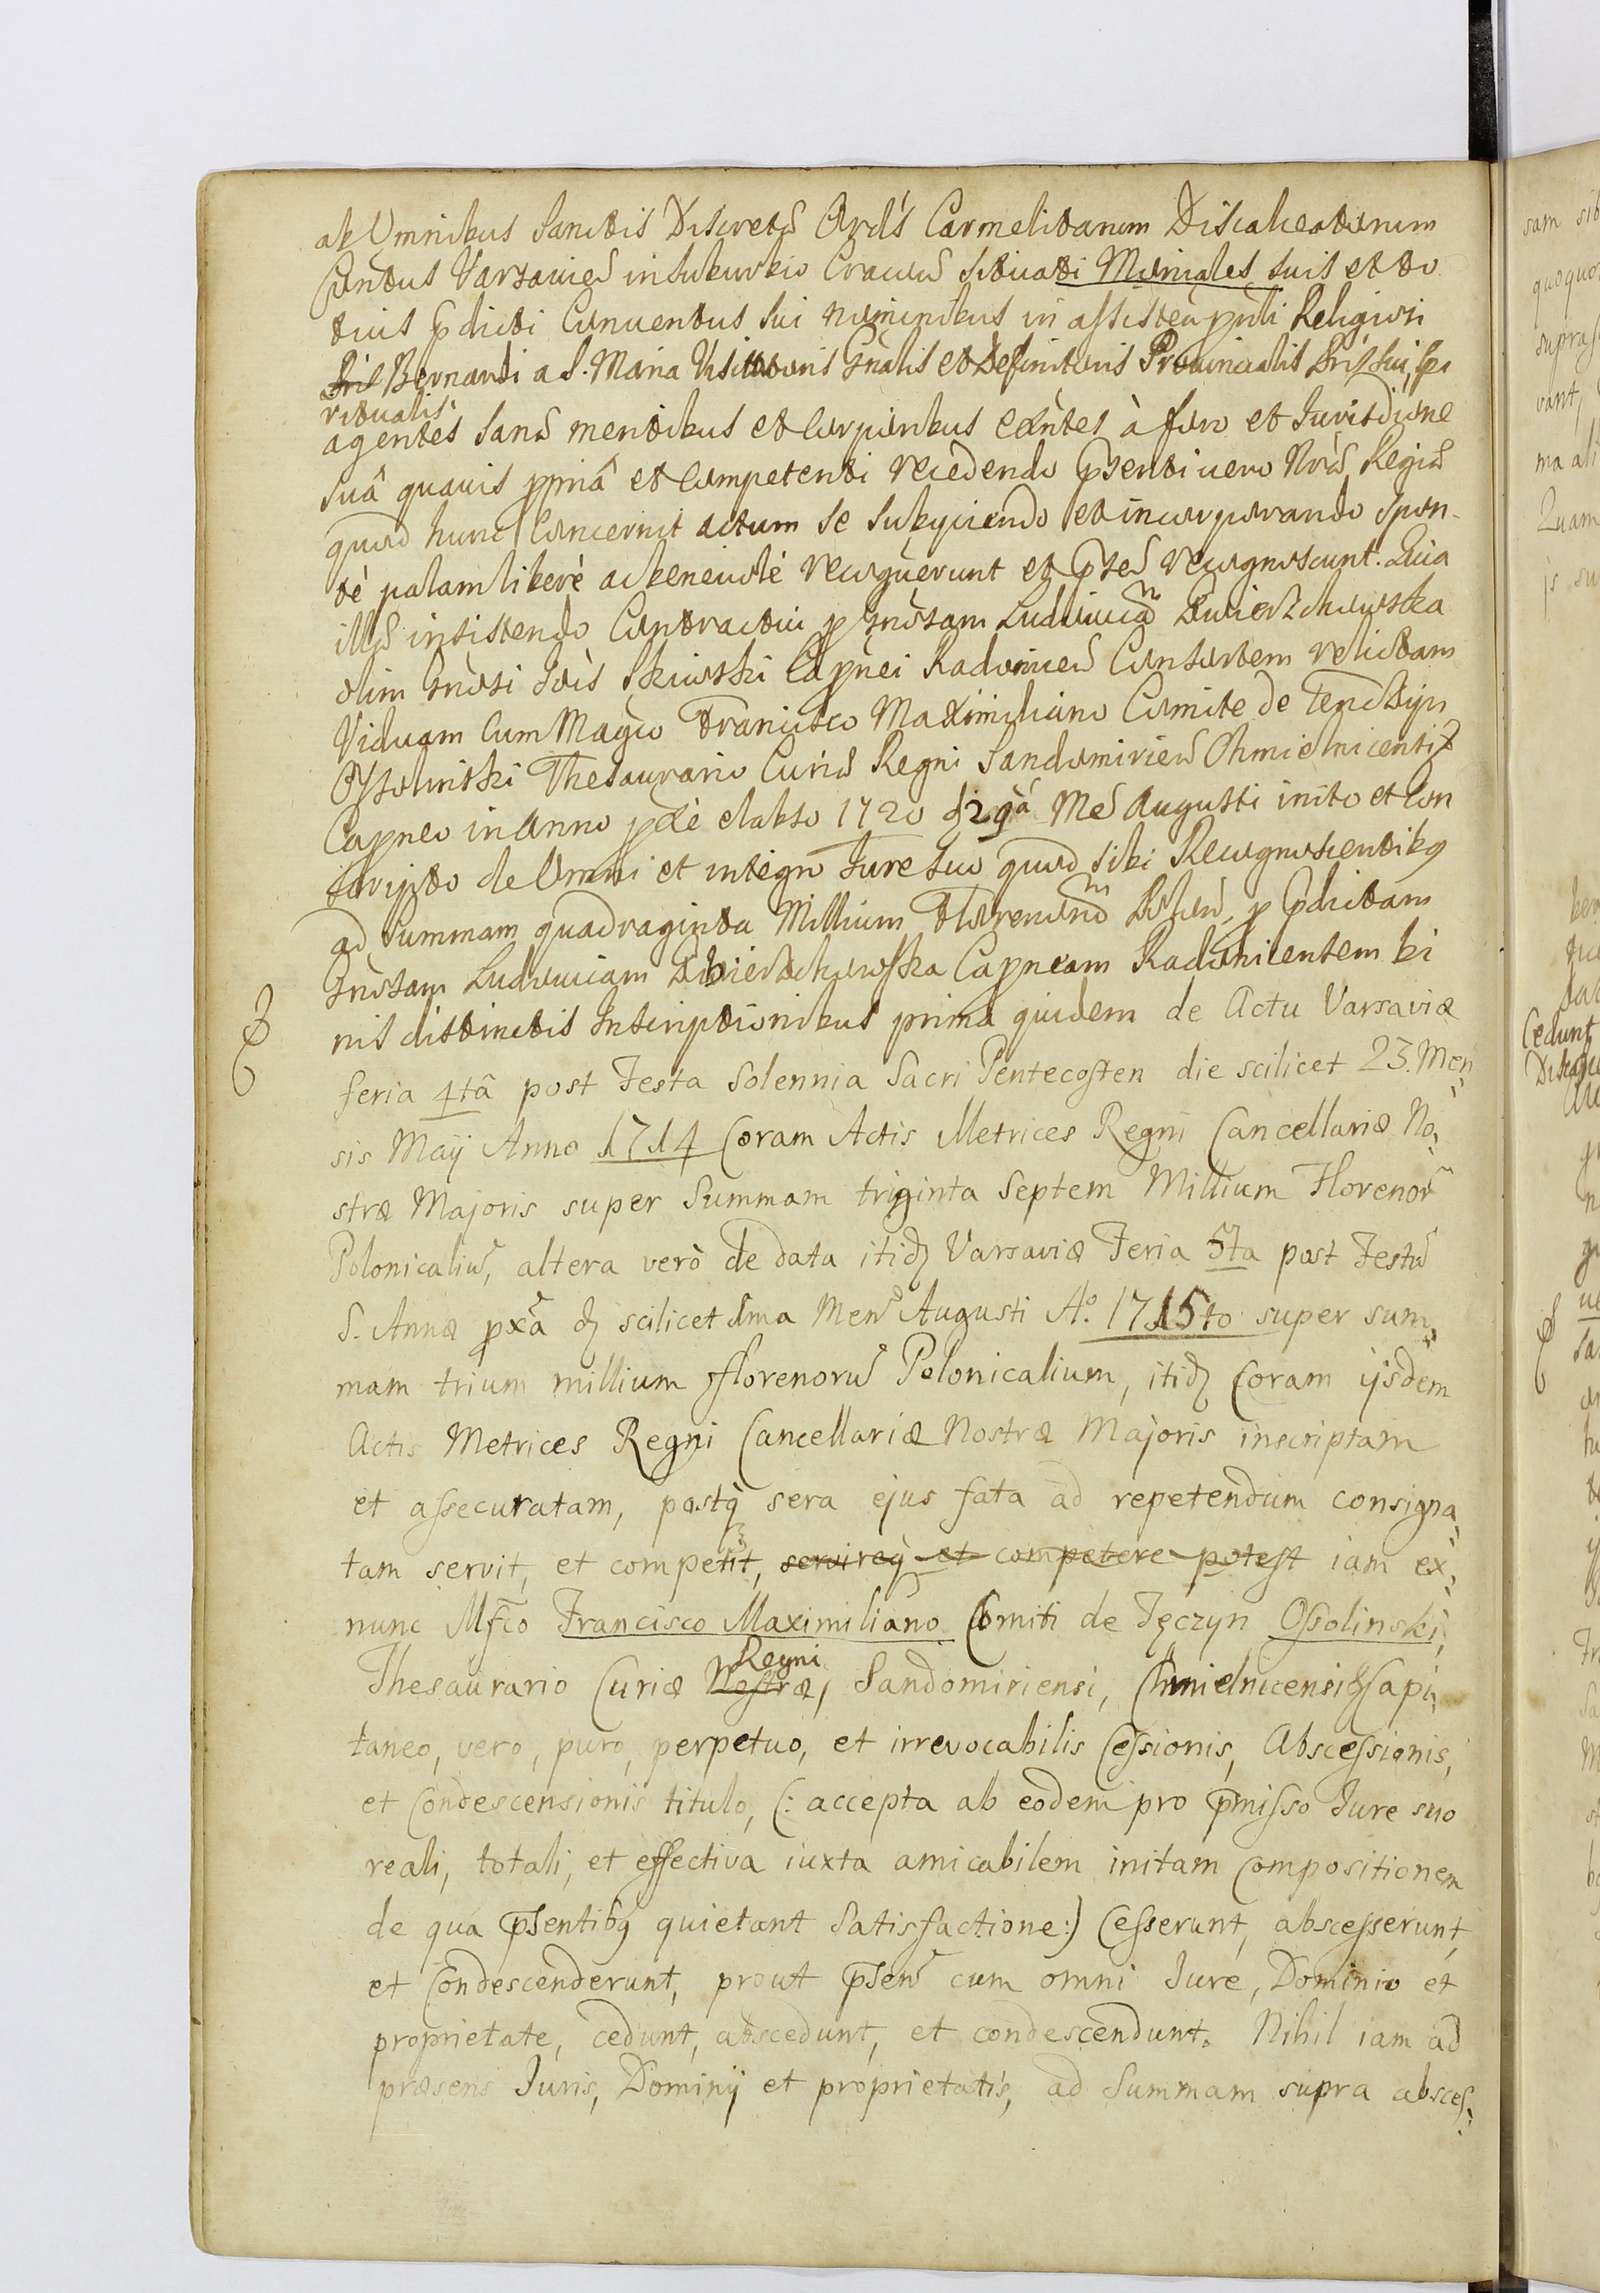 ab Omnibus Sanctis Discretæ Ord's Carmelitarum Discalceatarum
Conventus Varsavien in suburbio Cracovien situati Moniales suis et to
tius pdicti Conventus sui nominibus in assisten pnti Religiosi
Bernardi a S. Maria Visitatoris Gnalis et Definitoris Provincialis Pris sui, spi
ritualis
agentes sanæ mentibus et corporibus exntes à foro et Jurisdione
suâ quavis ppriâ et competenti recedendo psenti vero Nræ Regiæ
quoad hunc concernit actum se subyciendo et incorporando spon-
tè palam liberè ac benevolè recognuerunt et psen recognoscunt. Quia
insistendo Contractui p Gnosam Ludovicam Zwierzchowska
olim Gnosi Jois Skiwski Capnei Radomien Consortem relictam
Viduam cum Magco Francisco Maximiliano Comite de Tenczyn
Ossolinski Thesaurario Curiæ Regni Sandomirien Chmielnicensi
Capneo in Anno pxè elabso 1720 d 29â Me Augusti inito et con
scripto de Omni et integro Jure suo quod sibi Recognoscentibq
ad summam quadraginta Millium Florenorum Polon p pdictam
Gnosam Ludovicam Zwierzchowska Capneam Radomicensem bi
nis distinctis Inscriptionibus prima quidem de Actu Varsaviæ
feria 4tâ post Festa Solennia Sacri Pentecosten die scilicet 23. Men
sis Maij Anno 1714 Coram Actis Metrices Regni Cancellariæ No,
stræ Majoris super Summam triginta Septem Millium Florenor
Polonicaliu, altera verò de data itid Varsaviæ Feria 5ta post Festu
S. Annæ pxâ d scilicet 1ma Men Augusti Aº. 1715to super sum,
mam trium millium fflorenoru Polonicalium, itid Coram ijsdem
Actis Metrices Regni Cancellariæ Nostræ Majoris inscriptam
et assecuratam, postq sera ejus fata ad repetendum consigna,
tam servit, et competit, servireq et competere potest iam ex,
nunc Mfco Francisco Maximiliano Comiti de Tęczyn Ossolinski,
Regni
Thesaurario Curiæ Nostræ, Sandomiriensi, Chmielnicensi Capi,
taneo, vero, puro, perpetuo, et irrevocabilis Cessionis, Abscessionis,
et Condescensionis titulo, (: accepta ab eodem pro pmisso Jure suo
reali, totali, et effectiva iuxta amicabilem initam Compositionem
de qua psentibq quietant Satisfactione:) Cesserunt, abscesserunt,
et Condescenderunt, prout psen cum omni Jure, Dominio et
proprietate, cedunt, abscedunt, et condescendunt. Nihil iam ad
præsens Juris, Dominij et proprietatis, ad Summam supra absces,